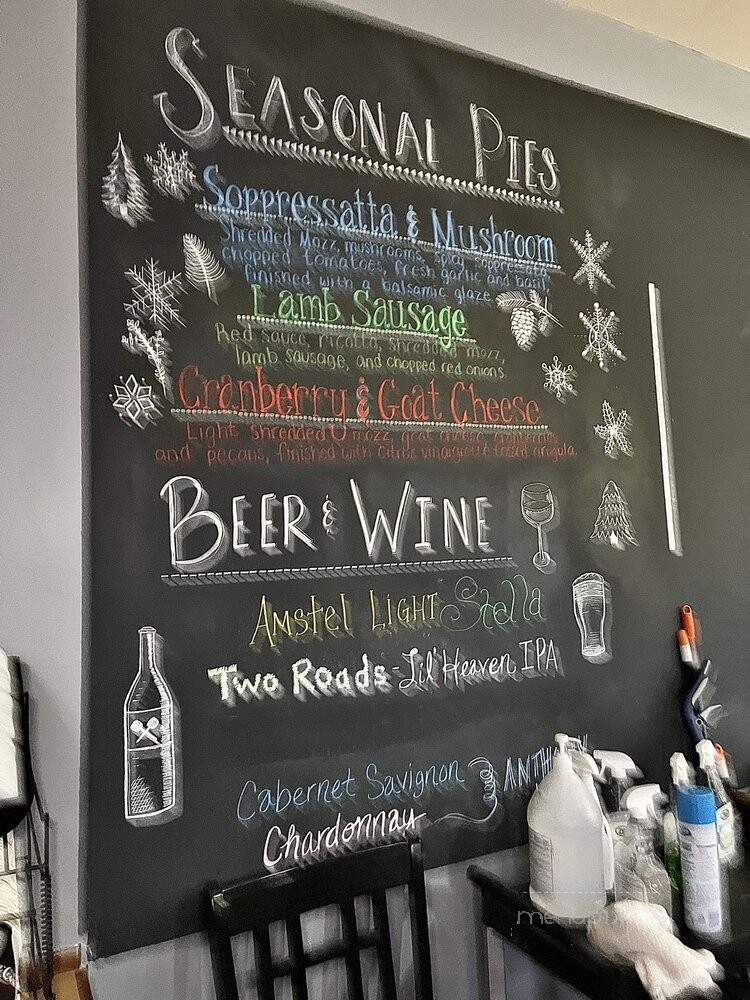 SEASONAL PIES
Soppressatta & Mushroom
Shredded Mozz, mushrooms, spicy soppressata
chopped tomatoes, fresh garlic and basil
finished with a balsamic glaze
Lamb Sausage
Red sauce, ricotta, shredded mozz,
lamb sausage, and chopped red onions
Cranberry & Goat Cheese
Light shredded mozz, goat cheese, cranberries
and pecans, finished with citrus vinaigrette tossed arugula.
BEER & WINE
AMSTEL LIGHT Stella
Two Roads-Lil' Heaven IPA
Cabernet Savignon
Chardonnay